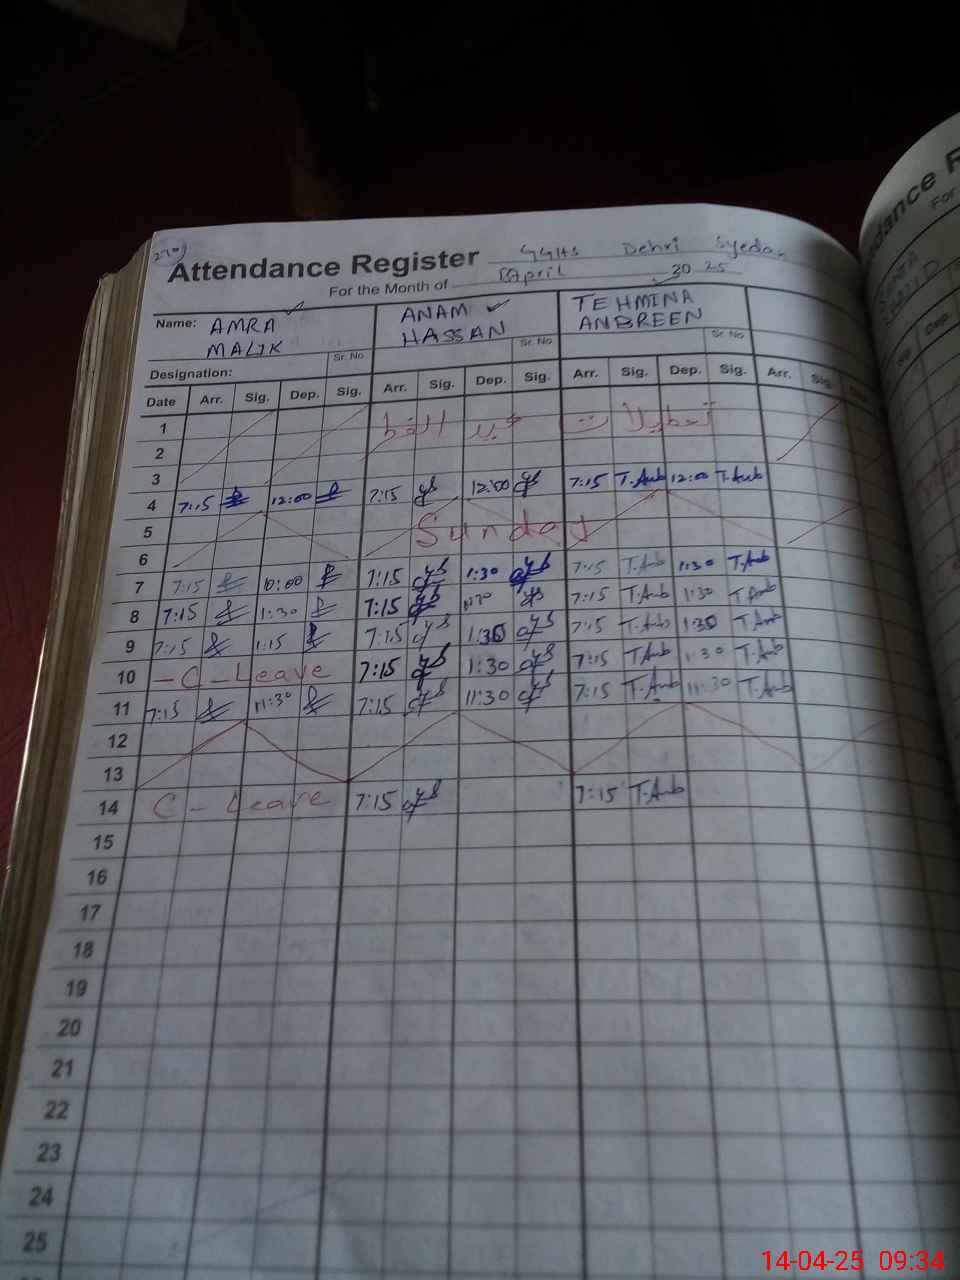 Attendance Register GGHS Dehri Syedan
For the Month of April 2025
Name: AMRA MALIK ANAM HASSAN TEHMINA ANBREEN
Sr. No Sr. No Sr. No
Designation:
Date Arr. Sig. Dep. Sig. Arr. Sig. Dep. Sig. Arr. Sig. Dep. Sig. Arr. Sig.
1 تعطیلات عید الفطر
2
3
4 7:15 12:00 7:15 12:00 7:15 T.Anb 12:00 T.Anb
5 Sunday
6
7 7:15 10:00 7:15 1:30 7:15 T.Anb 1:30 T.Anb
8 7:15 1:30 7:15 7:15 T.Anb 1:30 T.Anb
9 7:15 1:15 7:15 1:30 7:15 T.Anb 1:30 T.Anb
10 - C - Leave 7:15 1:30 7:15 T.Anb 1:30 T.Anb
11 7:15 11:30 7:15 11:30 7:15 T.Anb 11:30 T.Anb
12
13
14 C - Leave 7:15 7:15 T.Anb
15
16
17
18
19
20
21
22
23
24
25
14-04-25 09:34